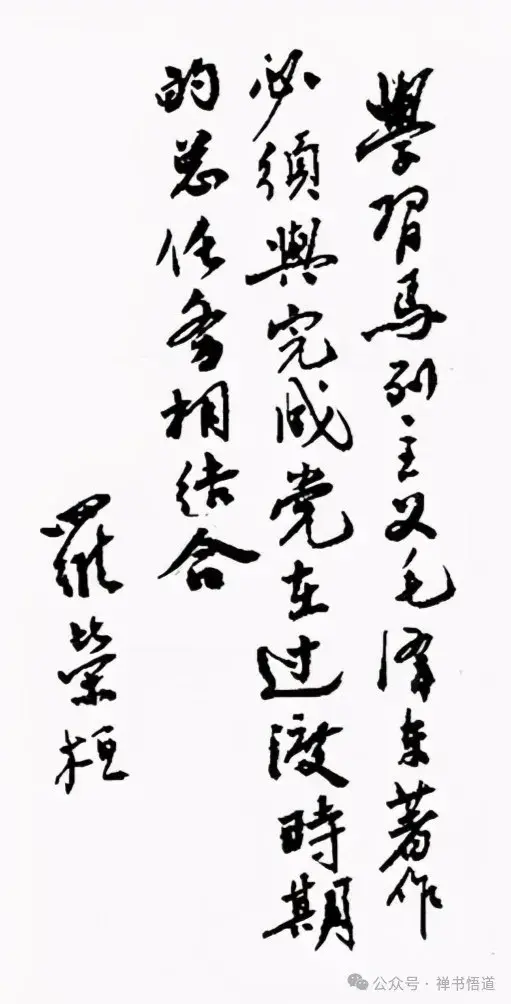 學習马列主义毛泽东著作
必須與完成党在过渡時期
的总任务相结合
羅榮桓
公众号·禅书悟道